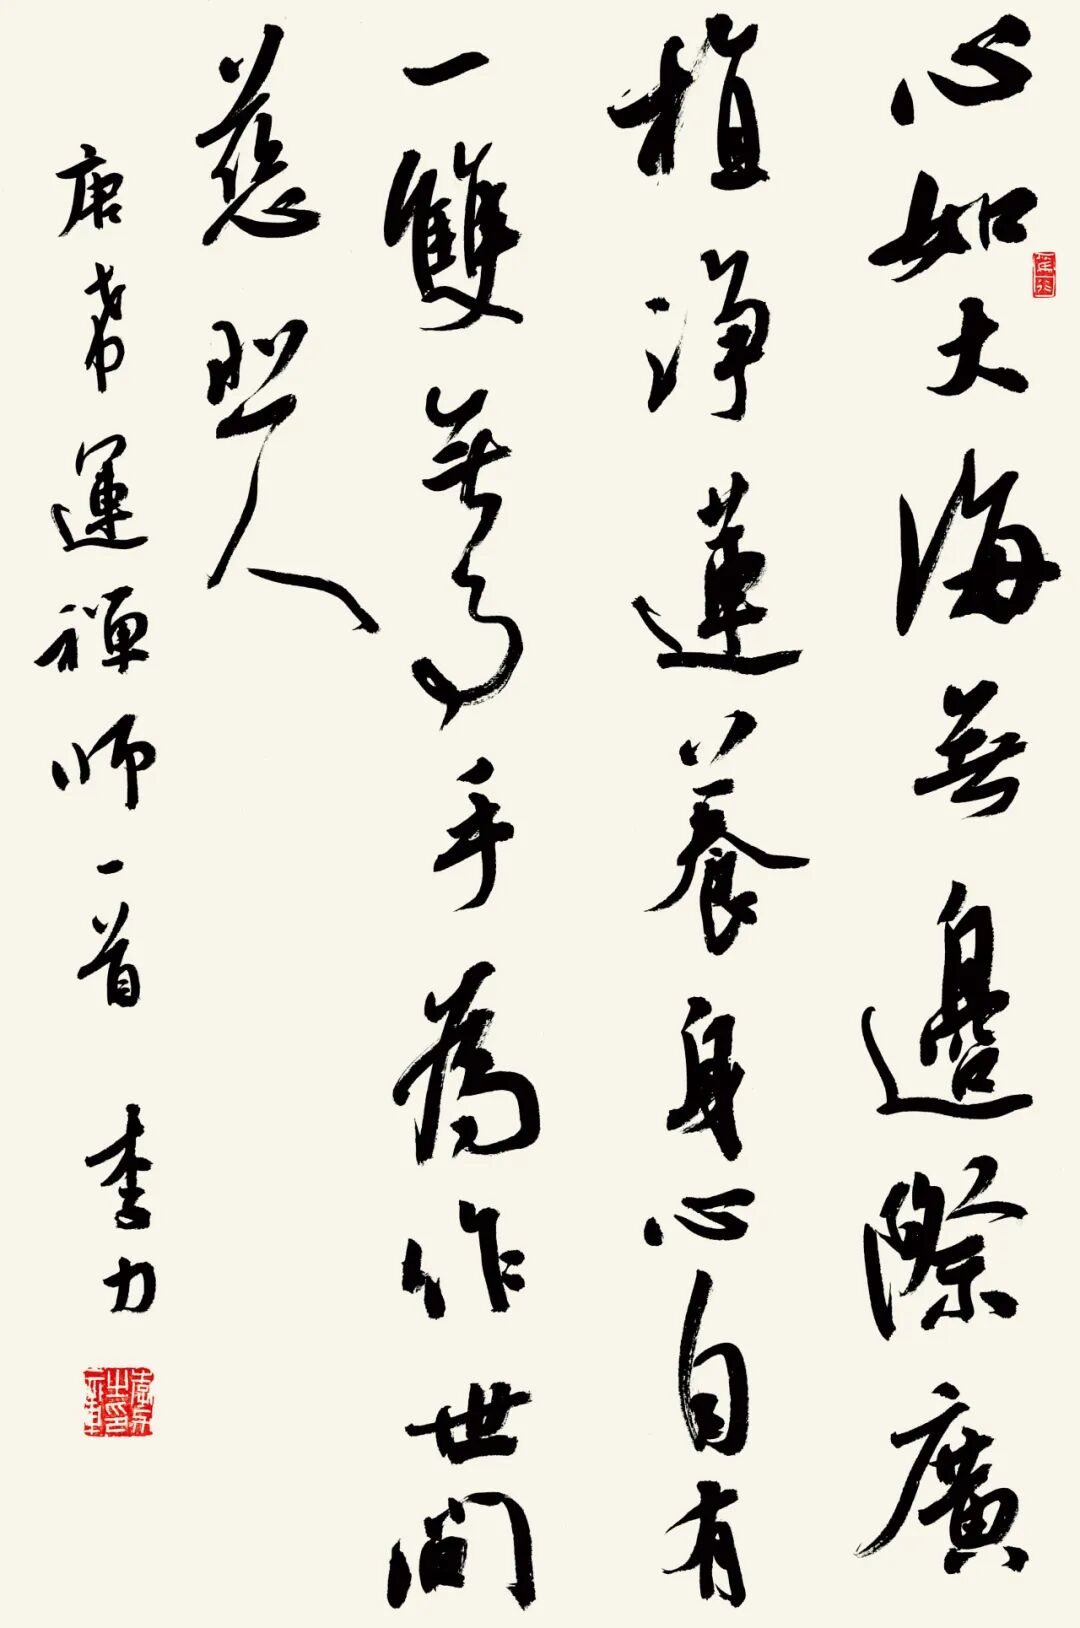 心如大海無邊際廣
植淨蓮養身心自有
一雙無事手為作世間
慈悲人
唐希運禪師一首 李力